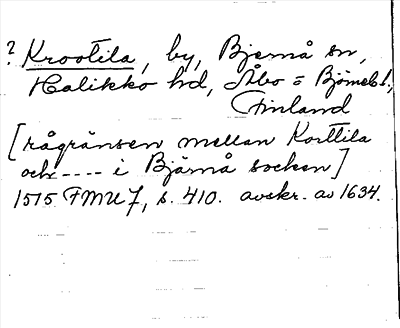 ? Krootila, by, Bjernå sn,
Halikko hd, Åbo = Björneb. l.,
Finland
[rågränsen mellan Korttila
och ---- i Bjärnå socken]
1515 FMU 7, s. 410. avskr. av 1634.